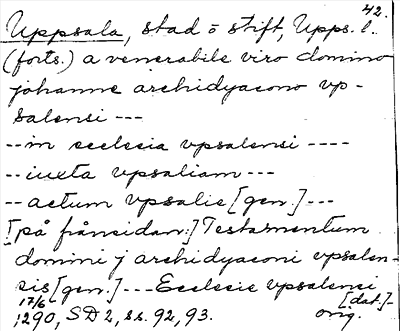 42.
Uppsala, stad o stift, Upps. l.
(forts.) a venerabile viro domino
johanne archidyacono vp-
salensi ---
-- in ecclecia vpsalensi ----
-- iuxta vpsaliam ---
-- actum vpsalie [gen.] ---
[på frånsidan:] Testamentum
domini j archidyaconi vpsalen-
sis [gen.] --- Ecclecie vpsalensi
[dat.]-
17/6
1290, SD 2, ss. 92, 93. orig.